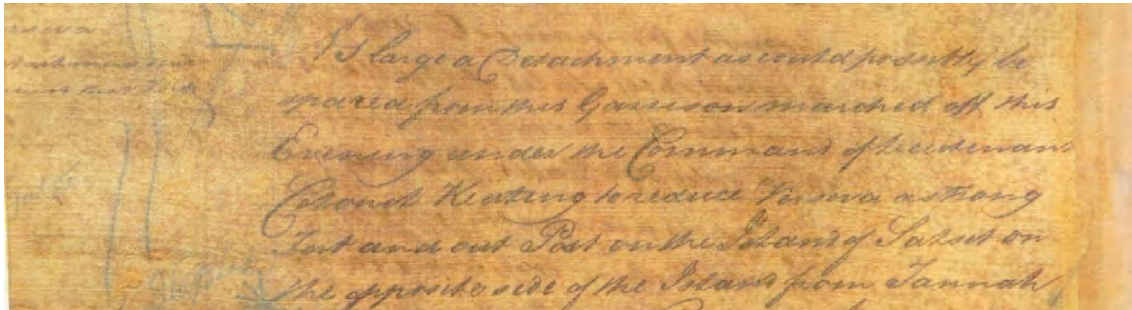 As large a Detachment as could possibly be
spared from this Garrison marched off this
Evening under the Command of Lieutenant
Colonel Keating to reduce Versova a strong
Fort and out Post on the Island of Salset on
the opposite side of the Island from Tannah